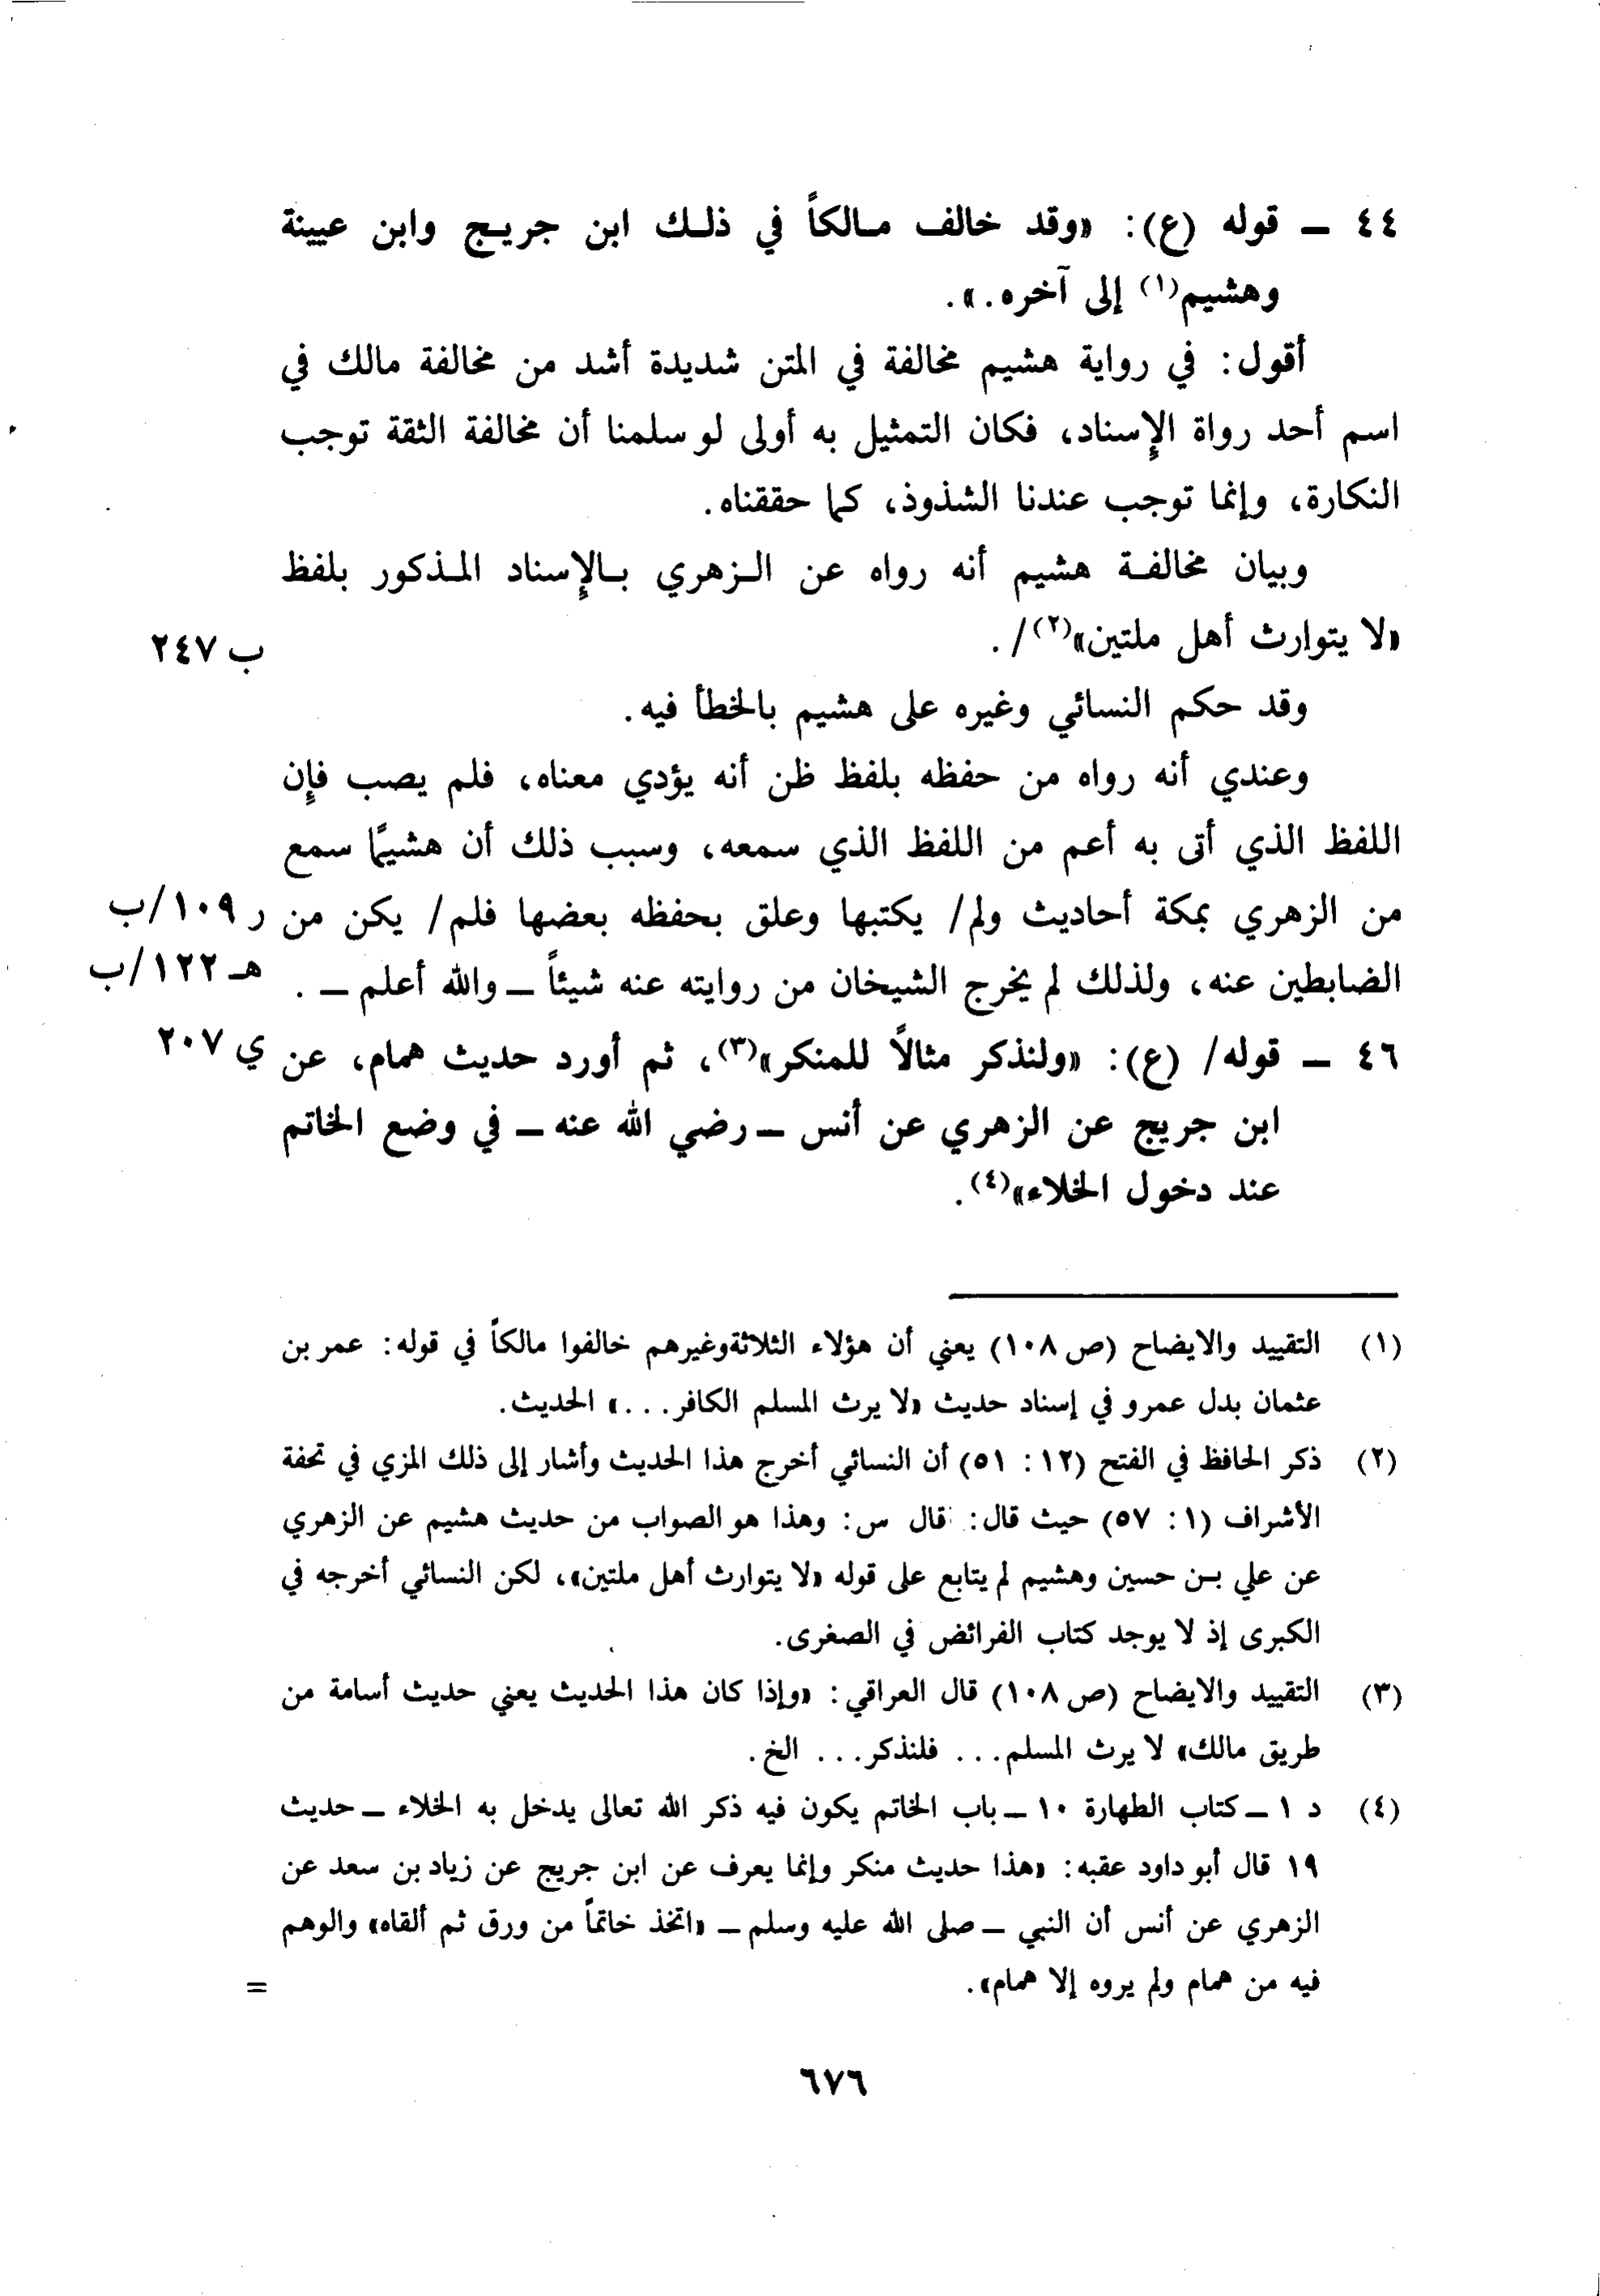 ٤٤ ــ قوله (ع): «وقد خالف مالكاً في ذلك ابن جريج وابن عيينة
وهشيم(١) إلى آخره.».
أقول: في رواية هشيم مخالفة في المتن شديدة أشد من مخالفة مالك في
اسم أحد رواة الإسناد، فكان التمثيل به أولى لو سلمنا أن مخالفة الثقة توجب
النكارة، وإنما توجب عندنا الشذوذ، كما حققناه.
وبيان مخالفة هشيم أنه رواه عن الزهري بالإسناد المذكور بلفظ
«لا يتوارث أهل ملتين»(٢)/.
ب ٢٤٧
وقد حكم النسائي وغيره على هشيم بالخطأ فيه.
وعندي أنه رواه من حفظه بلفظ ظن أنه يؤدي معناه، فلم يصب فإن
اللفظ الذي أتى به أعم من اللفظ الذي سمعه، وسبب ذلك أن هشيمًا سمع
من الزهري بمكة أحاديث ولم/ يكتبها وعلق بحفظه بعضها فلم/ يكن من
ر ١٠٩/ب
الضابطين عنه، ولذلك لم يخرج الشيخان من روايته عنه شيئاً ــ والله أعلم ــ .
هـ ١٢٢/ب
٤٦ ــ قوله/ (ع): «ولنذكر مثالاً للمنكر»(٣)، ثم أورد حديث همام، عن
ي ٢٠٧
ابن جريج عن الزهري عن أنس ــ رضي الله عنه ــ في وضع الخاتم
عند دخول الخلاء»(٤).
(١) التقييد والايضاح (ص ١٠٨) يعني أن هؤلاء الثلاثة وغيرهم خالفوا مالكاً في قوله: عمر بن
عثمان بدل عمرو في إسناد حديث «لا يرث المسلم الكافر...» الحديث.
(٢) ذكر الحافظ في الفتح (١٢: ٥١) أن النسائي أخرج هذا الحديث وأشار إلى ذلك المزي في تحفة
الأشراف (١: ٥٧) حيث قال: قال س: وهذا هو الصواب من حديث هشيم عن الزهري
عن علي بن حسين وهشيم لم يتابع على قوله «لا يتوارث أهل ملتين»، لكن النسائي أخرجه في
الكبرى إذ لا يوجد كتاب الفرائض في الصغرى.
(٣) التقييد والايضاح (ص ١٠٨) قال العراقي: «وإذا كان هذا الحديث يعني حديث أسامة من
طريق مالك» لا يرث المسلم... فلنذكر... الخ.
(٤) د ١ ــ كتاب الطهارة ١٠ ــ باب الخاتم يكون فيه ذكر الله تعالى يدخل به الخلاء ــ حديث
١٩ قال أبو داود عقبه: «هذا حديث منكر وإنما يعرف عن ابن جريج عن زياد بن سعد عن
الزهري عن أنس أن النبي ــ صلى الله عليه وسلم ــ «اتخذ خاتماً من ورق ثم ألقاه» والوهم
فيه من همام ولم يروه إلا همام».
=
٦٧٦